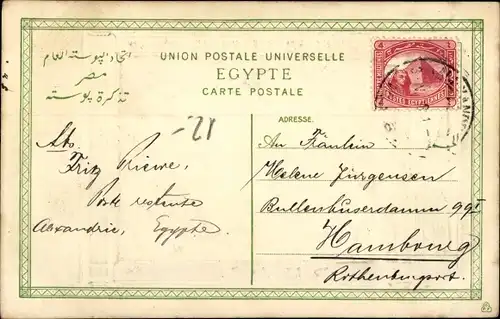 اتحاد بوستة العام
مصر
تذكرة بوستة
UNION POSTALE UNIVERSELLE
EGYPTE
CARTE POSTALE
ADRESSE.
12-
Abs.
Fritz
Poste restante
Alexandrie, Egypte.
An Fräulein
Helene Jürgensen
Bullenhuserdamm 99 I
Hambourg
Rothenburgsort.